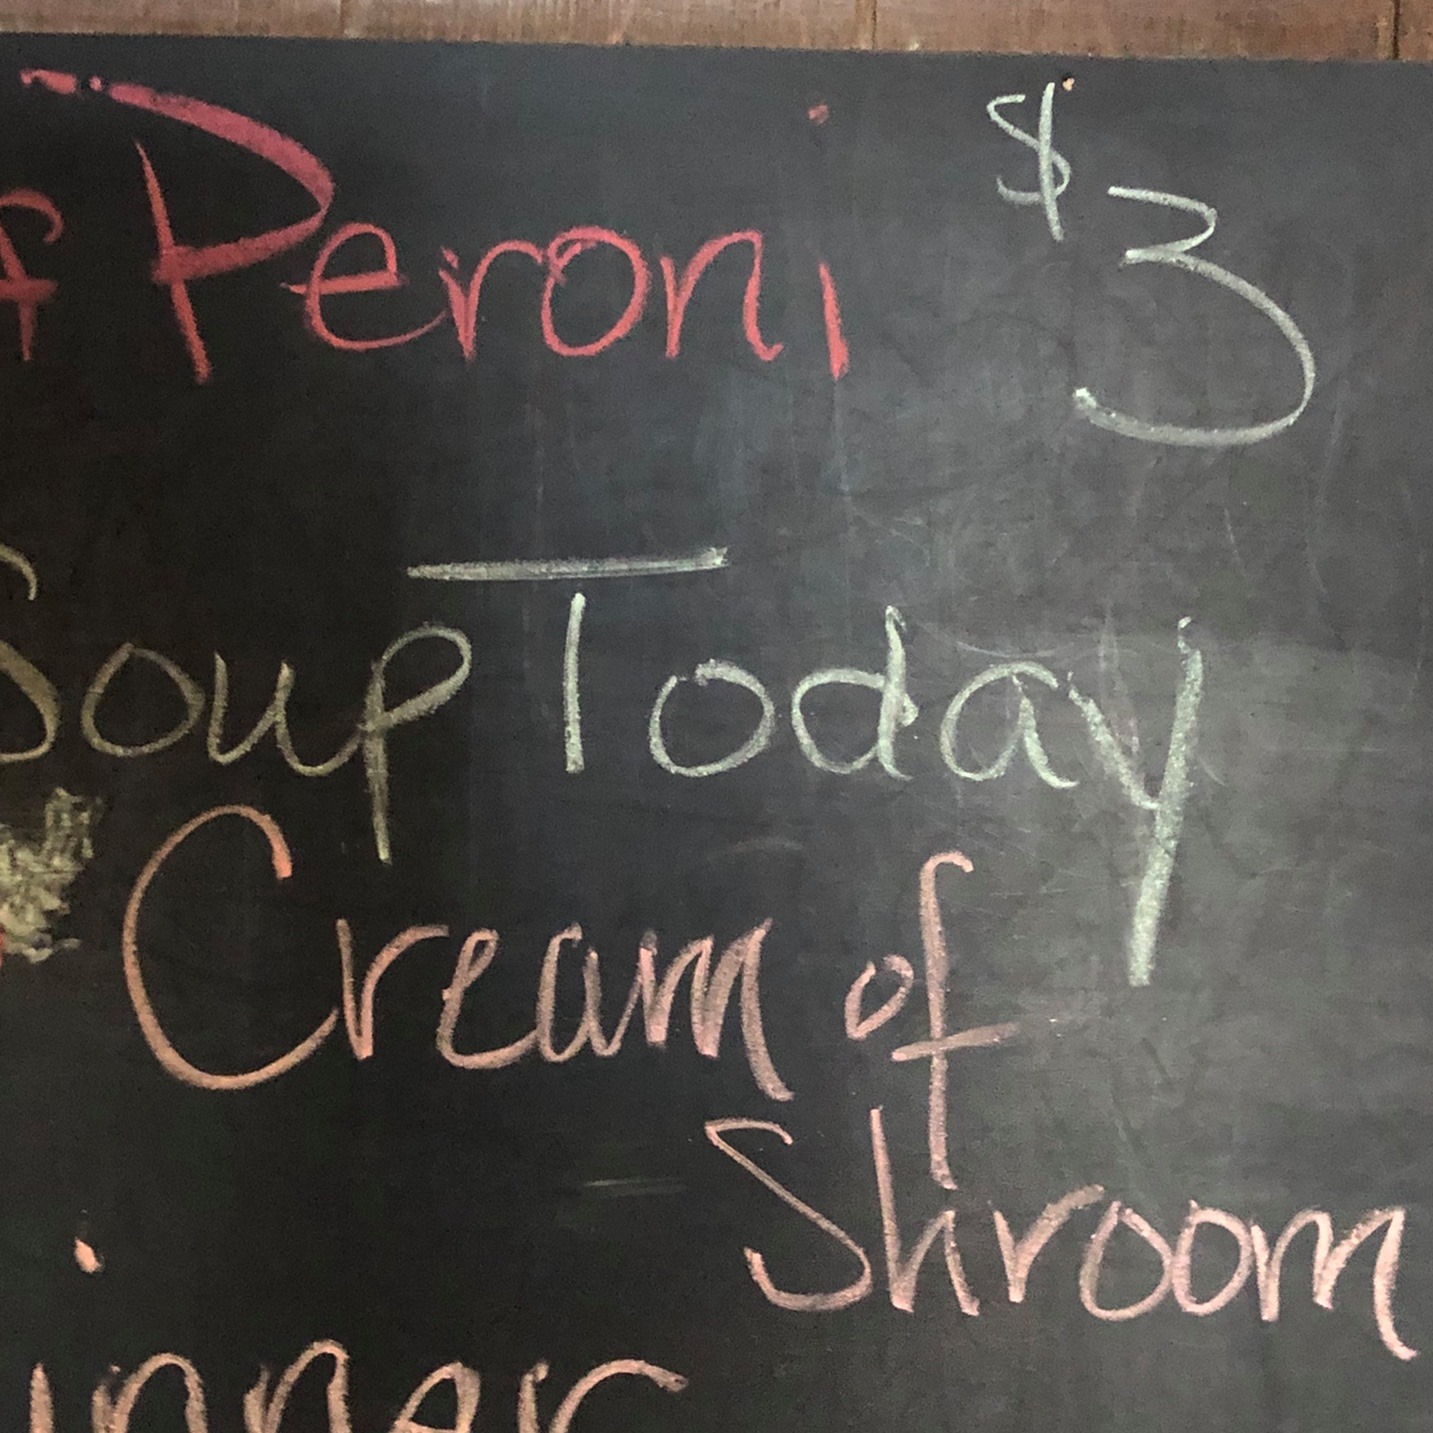 Peroni $3
Soup Today
Cream of
Shroom
inner